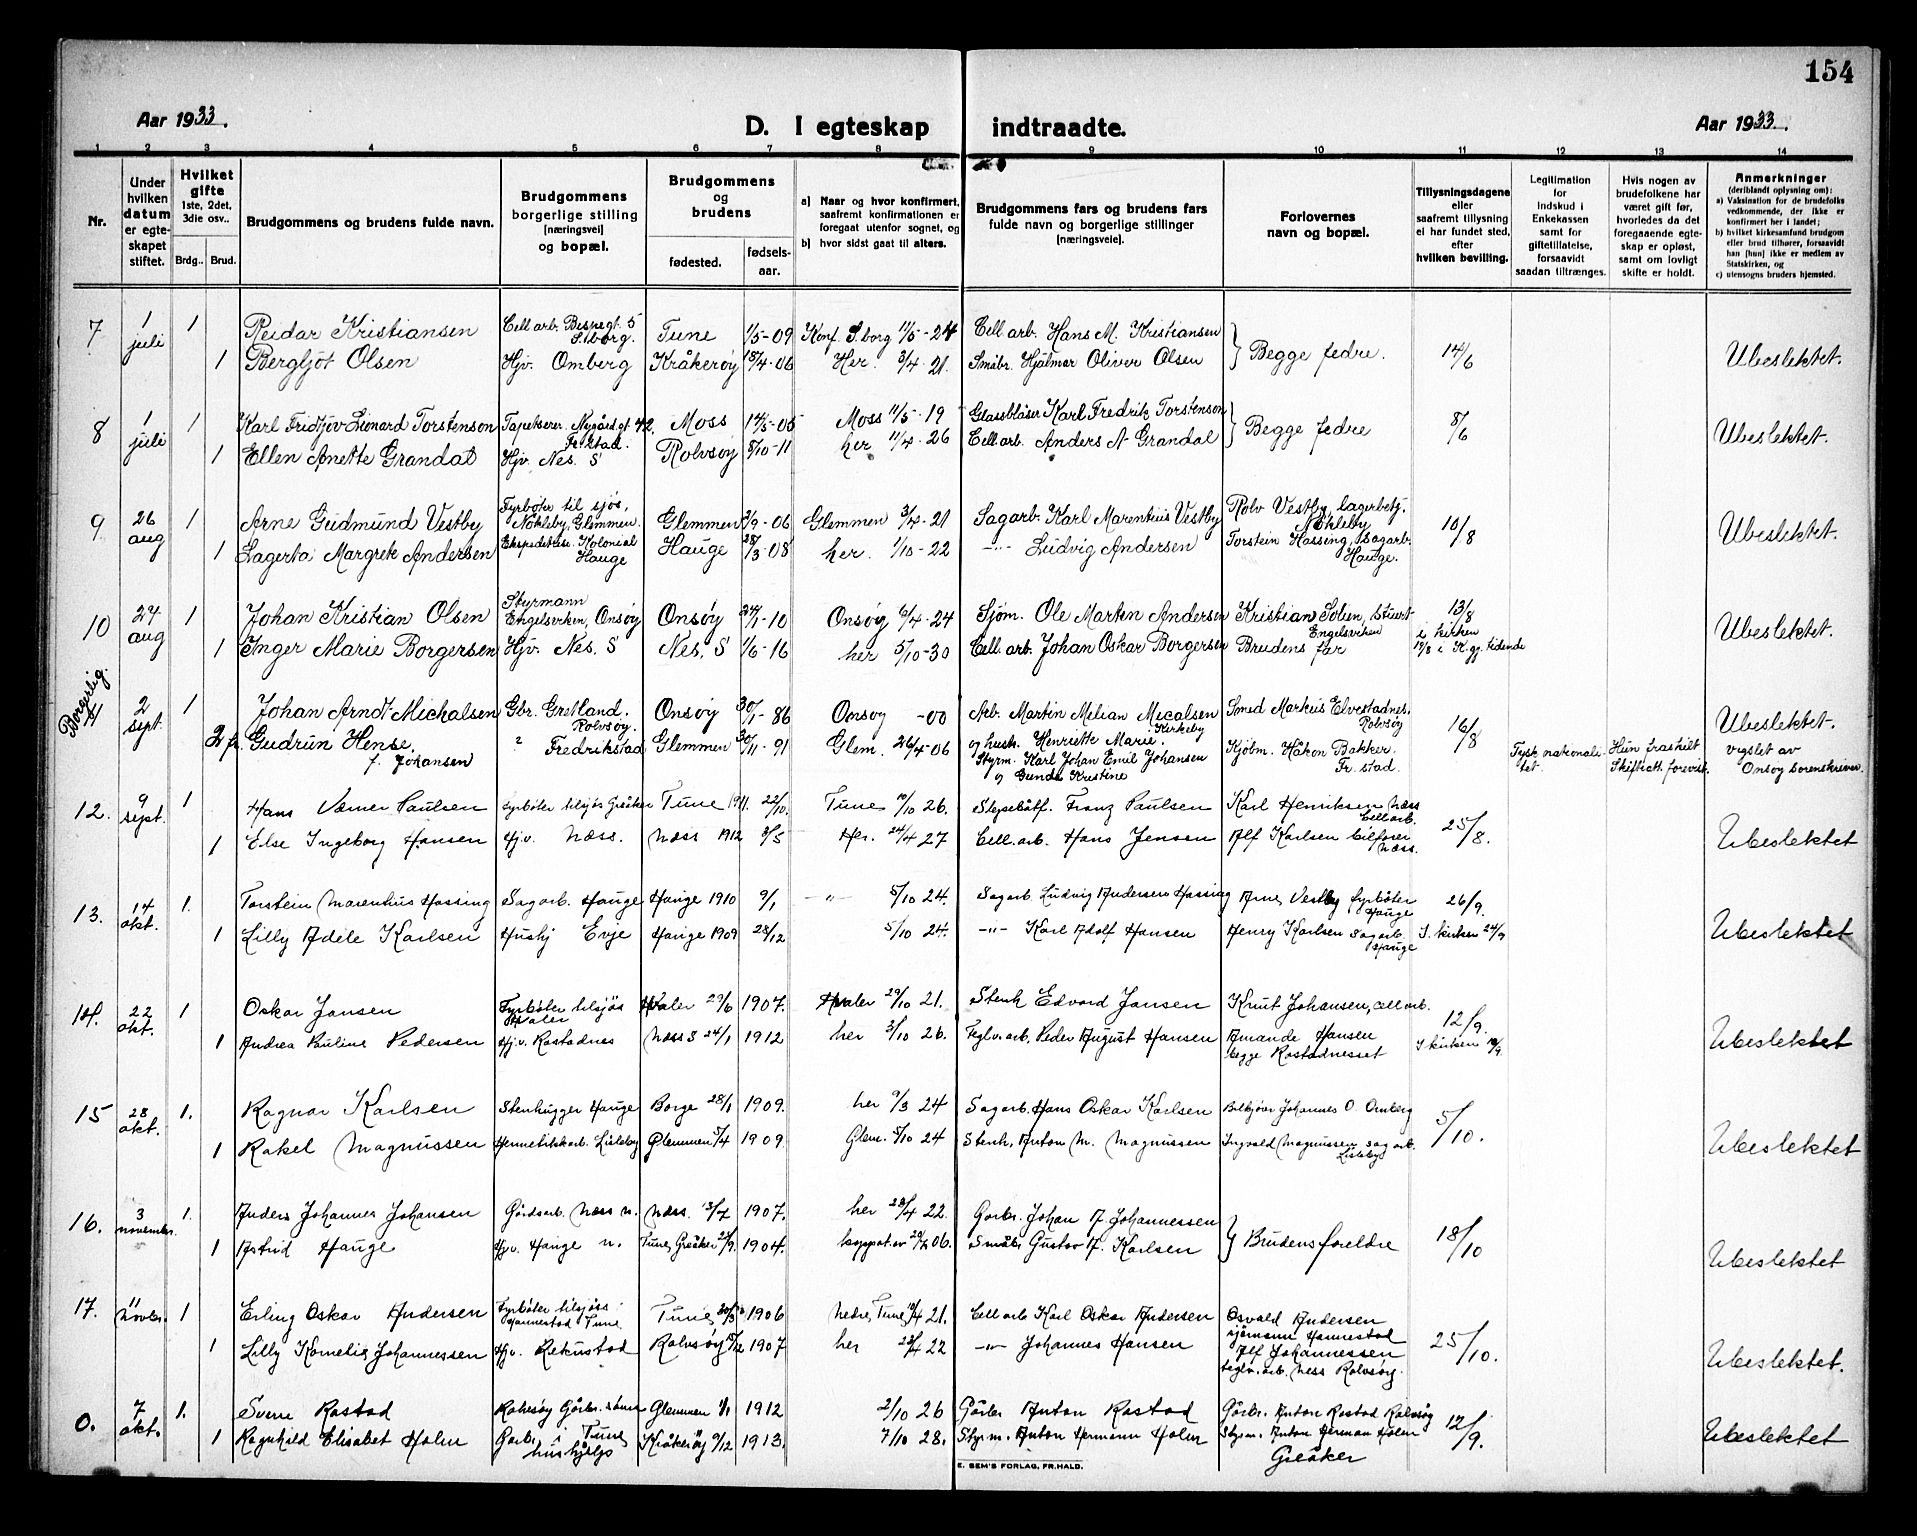 154
Aar 1933.
D. I egteskap indtraadte.
Aar 1933.
1 2 3 4 5 6 7 8 9 10 11 12 13 14
Nr.
Under hvilken datum er egte-skapet stiftet.
Hvilket gifte 1ste, 2det, 3die osv..
Brdg.. Brud.
Brudgommens og brudens fulde navn.
Brudgommens borgerlige stilling [næringsvei] og bopæl.
Brudgommens og brudens
fødested.
fødsels-aar.
a) Naar og hvor konfirmert, saafremt konfirmationen er foregaat utenfor sognet, og
b) hvor sidst gaat til alters.
Brudgommens fars og brudens fars fulde navn og borgerlige stillinger [næringsvei].
Forlovernes navn og bopæl.
Tillysningsdagene eller saafremt tillysning ei har fundet sted, efter hvilken bevilling.
Legitimation for indskud i Enkekassen samt for giftetillatelse, forsaavidt saadan tiltrænges.
Hvis nogen av brudefolkene har været gift før, hvorledes da det foregaaende egte-skap er opløst, samt om lovligt skifte er holdt.
Anmerkninger (deriblandt oplysning om):
a) Vaksination for de brudefolks vedkommende, der ikke er konfirmert her i landet;
b) hvilket kirkesamfund brudgom eller brud tilhører, forsaavidt han [hun] ikke er medlem av Statskirken, og
c) utensogns bruders hjemsted.
7 1 juli 1 Reidar Kristiansen Cell arb. Bispegt. 5 S.borg. Tune 1/5-09 Konf. S.borg 11/5-24 Cell arb. Hans M. Kristiansen } Begge fedre. 14/6 Ubeslektet.
1 Bergljot Olsen Hjv. Omberg Kråkerøy 18/4-06 Her. 3/4-21. Småbr. Hjalmar Oliver Olsen
8 1 juli 1 Karl Fridtjov Leonard Torstenson Tapetserer. Nygårdgt 42, Fr.stad. Moss 14/5-05 Moss 11/5-19 Glassblåser Karl Fredrik Torstenson } Begge fedre 8/6 Ubeslektet.
1 Ellen Anette Grandal Hjv. Nes. S Rolvsøy 8/10-11 her 11/4-26 Cell arb. Anders A. Grandal
9 26 aug 1 Arne Gudmund Vestby Fyrbøter til sjøs, Nøkleby, Glemmen. Glemmen 2/9-06 Glemmen 3/4-21 Sagarb. Karl Marentius Vestby Rolv Vestby, lagerbetj. Nøkleby 10/8 Ubeslektet.
1 Lagerta Margrete Andersen Ekspeditrise. Kolonial Hauge Hauge 28/3-08 her. 1/10-22 -"- Ludvig Andersen Torstein Hassing, sagarb. Hauge.
10 24 aug 1 Johan Kristian Olsen Styrmann Engelsviken, Onsøy Onsøy 24/1-10 Onsøy 6/4-24 Sjøm. Ole Marten Andersen Kristian Solien, stuert Engelsviken 13/8 i kirken Ubeslektet.
1 Inger Marie Borgersen Hjv. Nes. S Nes. S 1/6-16 her 5/10-30 Cell. arb. Johan Oskar Borgersen Brudens far i K.gj. tidende
Borgerlig. 11 2 sept. 1 Johan Arndt Michalsen Gbr. Gretland. Rolvsøy. Onsøy 30/1-86 Onsøy -00 Arb. Martin Milian Micalsen og husk. Henriette Marie. Kirkeby Smed Markus Elvestadnes. Rolvsøy 16/8 Ubeslektet.
2 fr. Gudrun Hense, f. Johansen ? Fredrikstad Glemmen 30/11-91 Glem. 26/4-06 Styrm. Karl Johan Emil Johansen og Gunda Kristine Kjøbm. Håkon Bakker. Fr.stad. Tysk nationalitet. Hun fraskilt Skifteatt. forevist. vigslet av Onsøy Sorenskriver.
12. 9 sept. 1 Hans Værner Paulsen Fyrbøter tilsjøs Greåker Tune 1911. 22/10. Tune 10/10 26. Slepebåtf. Franz Paulsen Karl Henriksen Næss Cellarb. 25/8. Ubeslektet
1 Else Ingeborg Hansen Hjv. Næss. Næss 1912 3/5 Her. 24/4 27 Cell. arb. Hans Jensen Alf Karlsen Næss.
13. 14 okt. 1. Torstein Marenhus Hassing Sagarb. Hauge Hauge 1910 9/1 -"- 5/10 24. Sagarb. Ludvig Andersen Hassing Arne Vestby Fyrbøter Hauge 26/9. Ubeslektet
1 Lilly Adele Karlsen Hushj Evje Hauge 1909 28/12 5/10 24. -"- Karl Adolf Hansen Henry Karlsen Sagarb. Hauge I. kirken 24/9
14. 22 okt. 1 Oskar Jansen Fyrbøter tilsjøs Hvaler Hvaler 29/6 1907. Hvaler 29/10 21. Stenh Edvard Jansen Knut Johansen, cellarb. 12/9. Ubeslektet
1 Andrea Pauline Pedersen Hj.v. Rostadnes Næss S 24/1 1912 her 3/10 26. Teglv.arb. Peder August Hansen Amande Hansen begge Rostadnesset I kirken 10/9
15 28 okt. 1. Ragnar Karlsen Stenhugger Hauge Borge 28/1 1909. her 9/3 24 Sagarb. Hans Oskar Karlsen Johannes O. Omberg 5/10. Ubeslektet
1 Rakel Magnussen Lisleby Glemmen 5/4 1909. Glem. 5/10 24 Stenh, Anton M. Magnussen Ingvald Magnussen Sagarb. Lisleby
16. 3 november. 1. Anders Johannes Johansen Gårdsarb. Næss n. Næss. 13/7 1907. her 28/4 22. Gårbr. Johan A. Johannessen } Brudens foreldre 18/10 Ubeslektet
1 Astrid Hauge Hjv. Hauge n. Tune, Greåker 21/9. 1904. 06. Småbr Gustav A. Karlsen
17. 11 Novbr. 1 Erling Oskar Andersen Fyrbøter tilsjøss. Hannestad Tune. Tune, 1906 Nedre Tune 10/4 21. Cell arb Karl Oskar Andersen Osvald Andersen sjømann Hannestad 25/10. Ubeslektet.
1 Lilly Kornelia Johannessen Hjv. Rekustad Rolvsøy 1907 her 22 -"- Johannes Hansen Alf Johannessen teglv.arb. Næss Rolvsøy.
0. 7 okt. 1. Sverre Rostad Rolvsøy Gårbr. sønn Glemmen 1/1 1912 2/10 26 Gårbr Anton Rostad Gårbr. Anton Rostad Rolvsøy 12/9. Ubeslektet
1 Ragnhild Elisabet Holm Gårbr. i Tune hushjelp Kråkerøy 9/12 1913. 7/10 28. Styrm. Anton Hermann Holm Styrm. Anton Herman Holm Greåker
E. SEM'S FORLAG, FR.HALD.